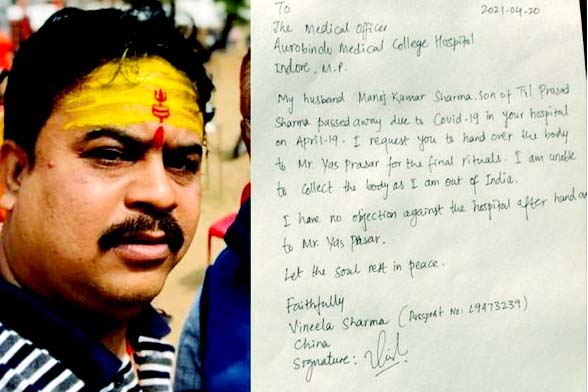 To
2021-04-20
The Medical Officer
Aurobindo Medical College Hospital
Indore, M.P.
My husband Manoj Kumar Sharma, son of Til Prasad
Sharma passed away due to Covid-19 in your hospital
on April-19. I request you to hand over the body
to Mr. Yas Prasar for the final rituals. I am unable
to collect the body as I am out of India.
I have no objection against the hospital after hand ov
to Mr. Yas Prasar.
Let the soul rest in peace.
Faithfully
Vineela Sharma (Passport No: L9473239)
China
Signature: